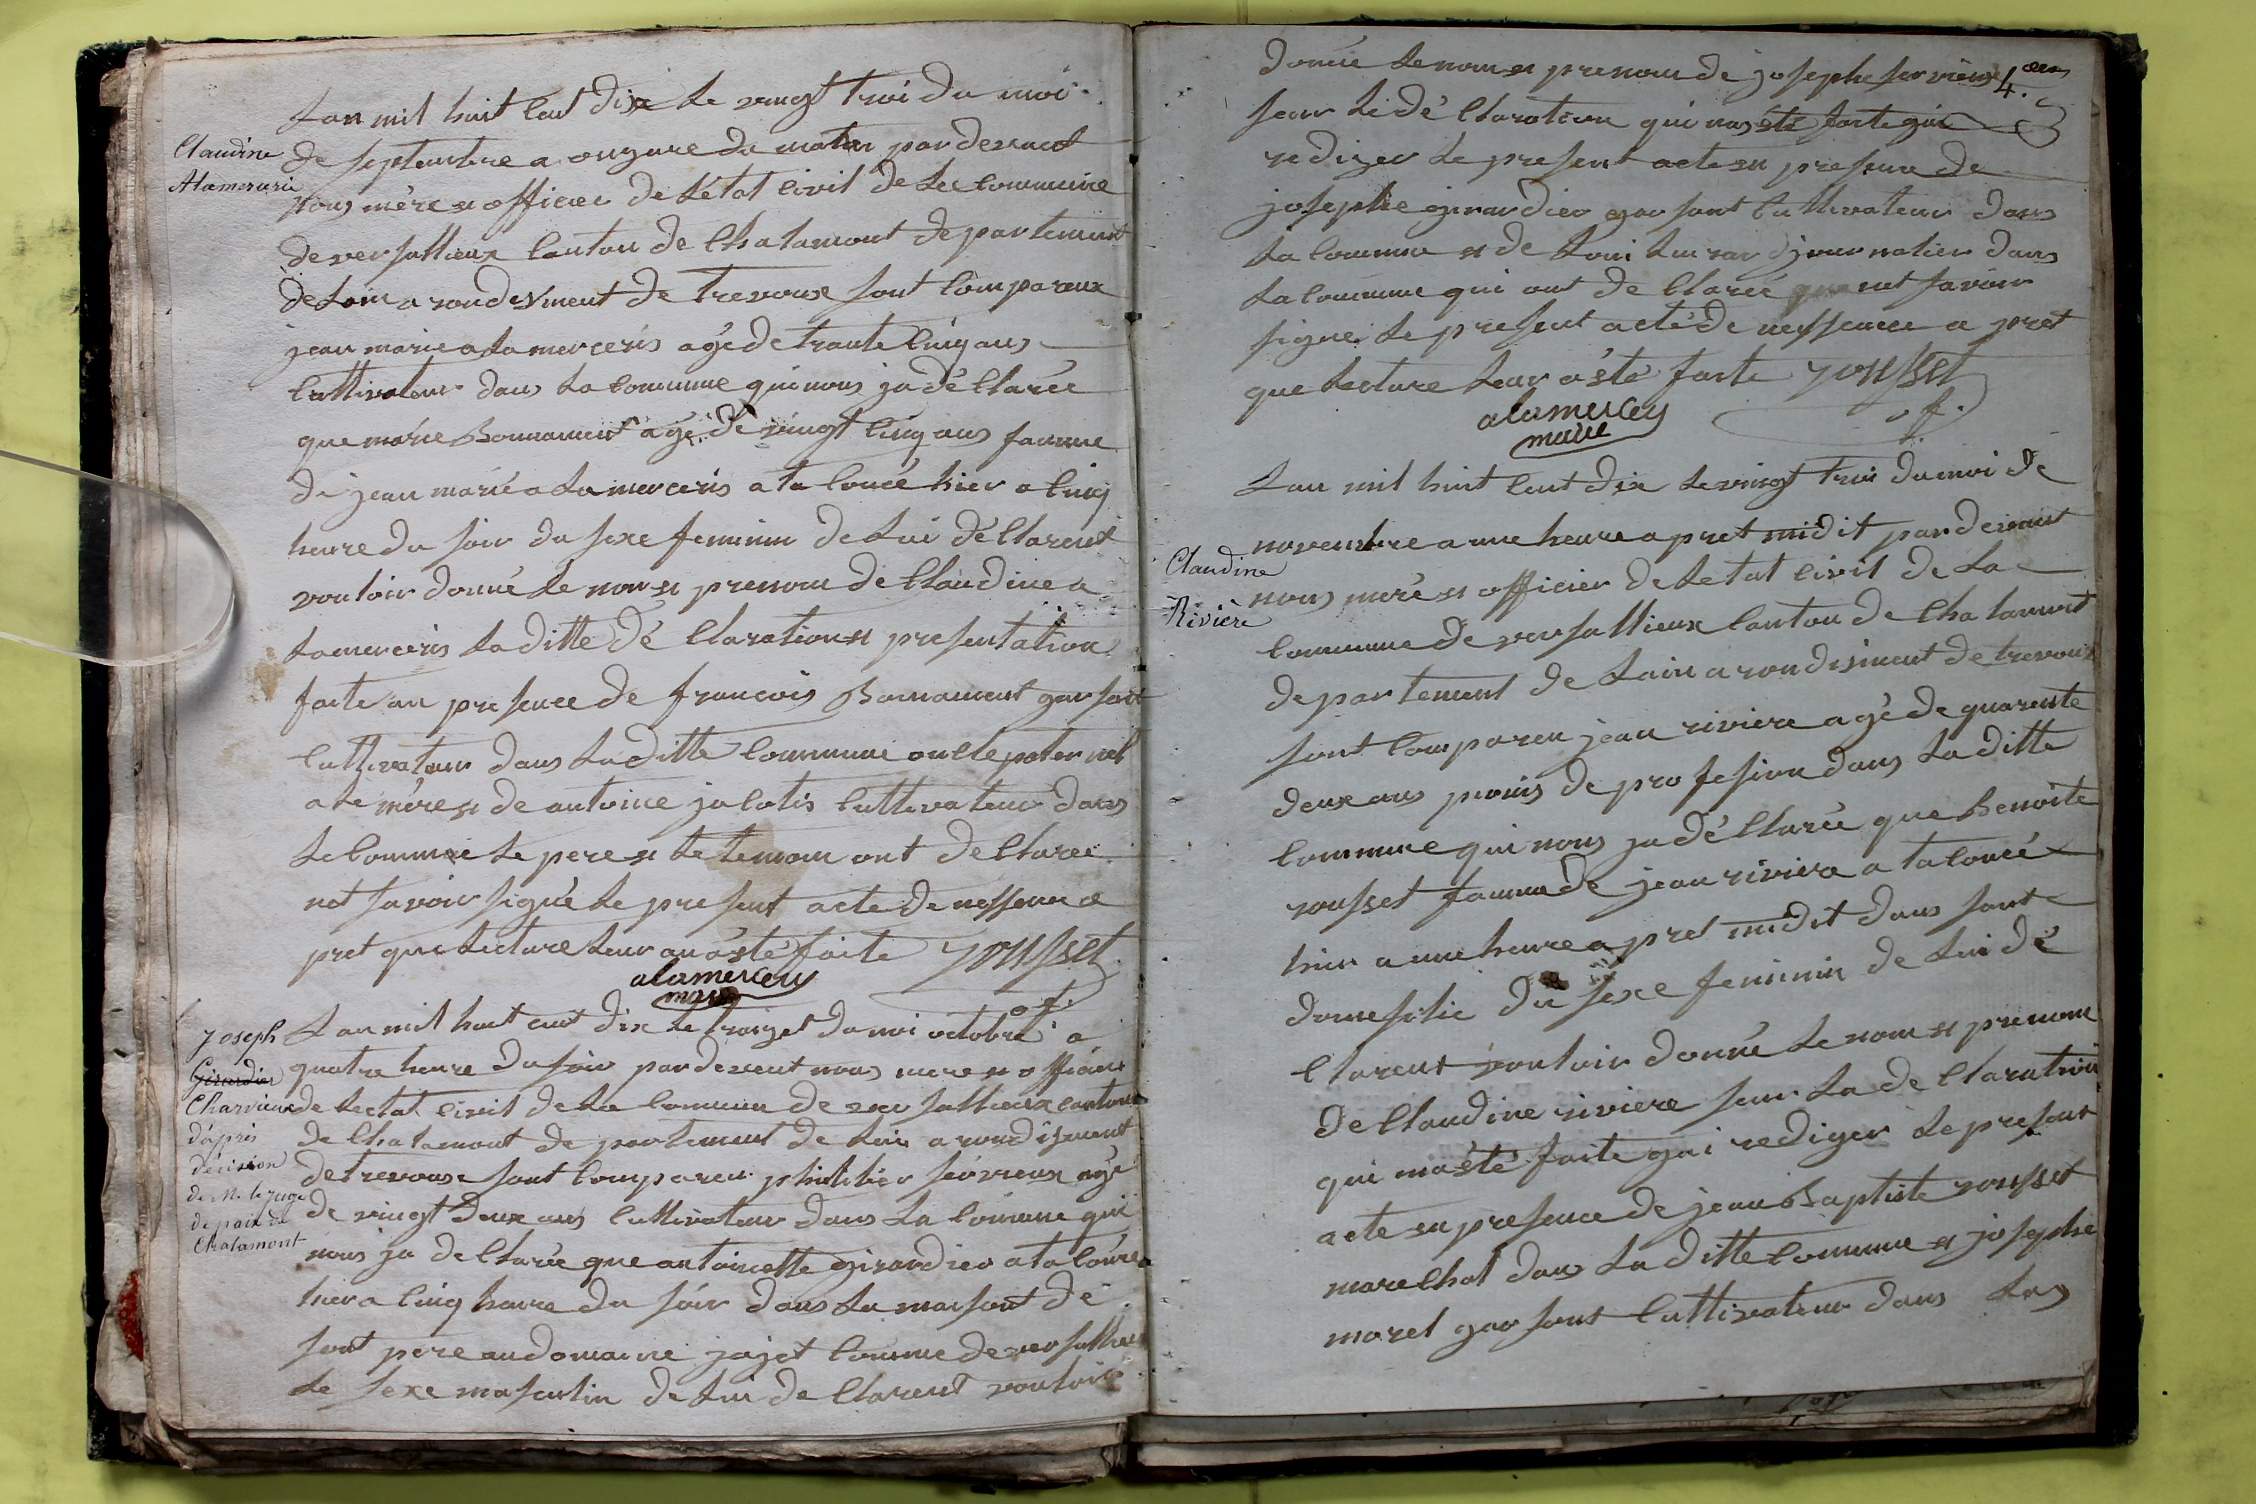 Claudine
Alamercerie
Lan mil huit Cent dix Le vingt troi du moi
de septembre a onzure du matin pardevent
nous mère et officier de Létat Civil de La Commune
de versallieux Canton de Chalamont departement
de Lain arondisment de trevoux sont Compareux
jean marie alamerceris agé de trante Cinq ans
Cultivateur dans La Commune qui nous ja dé Clarée
que marie Bonnament agé de vingt Cinq ans famme
de jean marie alamerceris ata Couée hier a Cinq
heure du soir du sexe feminin de Lui dé Clarent
vouloir donné Le nom et prenom de Claudine a
Lamerceris La ditte dé Claration et presentation
faite an presence de francois Bonnament garsont
Cultivateur dans La ditte Commune oncle paternel
a La mère et de antoine jalotis Cultivateur dans
Le Commune Le pere et Le temoin ont de Clarée
net savoir signé Le present acte de nessence a
pret que Lecture Leur an a été faite rousset
of.
alamercery
maire
Joseph
Girardier
Charvieux
d'après
décision
de Mr le juge
de paix de
Chalamont
Lan mil huit cent dix Le traizet du moi octobre a
quatre heure du soir pardevent nous mere et officier
de Lectat Civil de La Commune de versallieux canton
de Chalamont de partement de Lain arondisment
de trevoux sont Compareu philibier servieux agé
de vingt deux ans Cultivateur dans La Comune qui
nous ja de Clarée que antoinette girardier ata Couée
hier a Cinq heure du soir dans La maisont de
sont père au domaine jajet Comune de versallieux
Le sexe masculin de Lui de Clarent vouloir
4.
donnée Le nom et prenom de josephe servieux
seur Le dé Claration qui nas été faite gai
rediger Le present acte en presence de
josephe girardier garsont Cultivateur dans
La Commune et de Loui journalier dans
La Commune qui ont de Clarée net savoir
signé Le present acte de nessence a pret
que Lecture Leur a été faite rousset
of.
alamercery
maire
Claudine
Rivière
Lan mil huit Cent dix Le vingt troi du moi de
novembre a une heure apret midit pardevant
nous meré et officier de Letat Civil de La
Commune de versallieux Canton de Chalamont
de partement de Lain arondisment de trevoux
sont Compareu jean riviere agé de quarente
deux ans de profesion dans La ditte
Commune qui nous ja dé Clarée que Benoite
rousset famme de jean riviere a ta Couée
hier a une heure a pret midit dans sont
domesilie du sexe feminin de Lui dé
Clarent vouloir donné Le nom et prenom
de Claudine riviere seur La de Claration
qui ma été faite gai rediger Le present
acte en presence de jean Baptiste rousset
marechal dans La ditte Commune et josephe
morel garsont Cultivateur dans Las